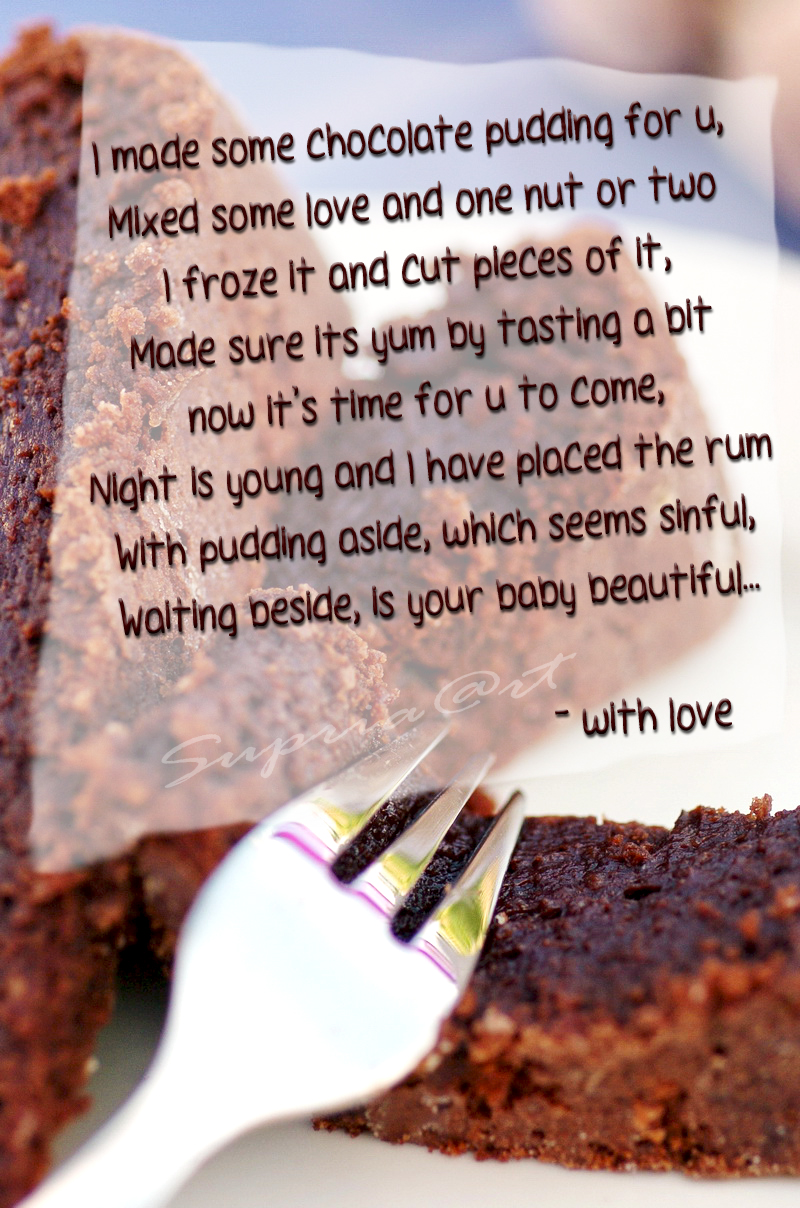 I made some chocolate pudding for u,
Mixed some love and one nut or two
I froze it and cut pieces of it,
Made sure its yum by tasting a bit
now it's time for u to come,
Night is young and I have placed the rum
With pudding aside, which seems sinful,
Waiting beside, is your baby beautiful...
- with love